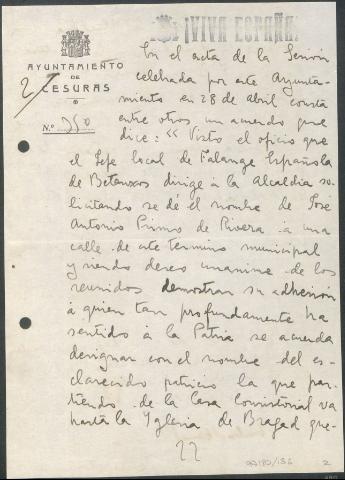 ¡VIVA ESPAÑA!
AYUNTAMIENTO
DE
CESURAS
N.º 350
En el acta de la Sesión
celebrada por este Ayunta-
miento en 28 de abril consta
entre otros un acuerdo que
dice: "Visto el oficio que
el Jefe local de Falange Española
de Betanzos dirige à la Alcaldía so-
licitando se dé el nombre de José
Antonio Primo de Rivera a una
calle de este termino municipal
y siendo deseo unanime de los
reunidos demostrar su adhesión
á quien tan profundamente ha
sentido à la Patria se acuerda
designar con el nombre del es-
clarecido patricio la que par-
tiendo de la Casa Consistorial va
hasta la Yglesia de Bragad que-
22
2